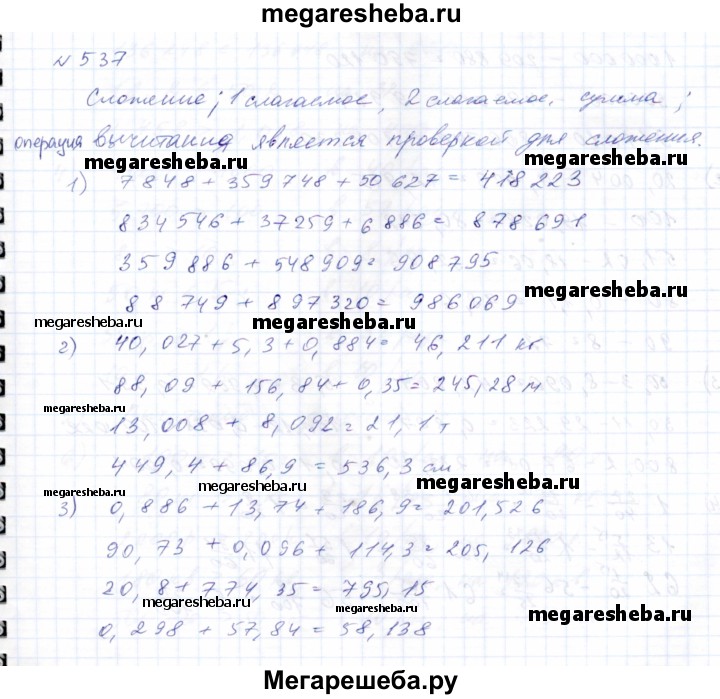 megaresheba.ru
№ 537
Сложение; 1 слагаемое, 2 слагаемое, сумма;
операция вычитания является проверкой для сложения.
megaresheba.ru megaresheba.ru
1) 7 848 + 359 748 + 50 627 = 418 223
834 546 + 37259 + 6 886 = 878 691
359 886 + 548 909 = 908 795
megaresheba.ru
88 749 + 897 320 = 986 069
megaresheba.ru megaresheba.ru
2) 40,027 + 5,3 + 0,884 = 46,211 кг
88,09 + 156,84 + 0,35 = 245,28 м
megaresheba.ru
13,008 + 8,092 = 21,1 т
449,4 + 86,9 = 536,3 см
megaresheba.ru megaresheba.ru
3) 0,886 + 13,74 + 186,9 = 201,526
90,73 + 0,096 + 114,3 = 205,126
20,8 + 774,35 = 795,15
megaresheba.ru megaresheba.ru megaresheba.ru
0,298 + 57,84 = 58,138
Мегарешеба.ру